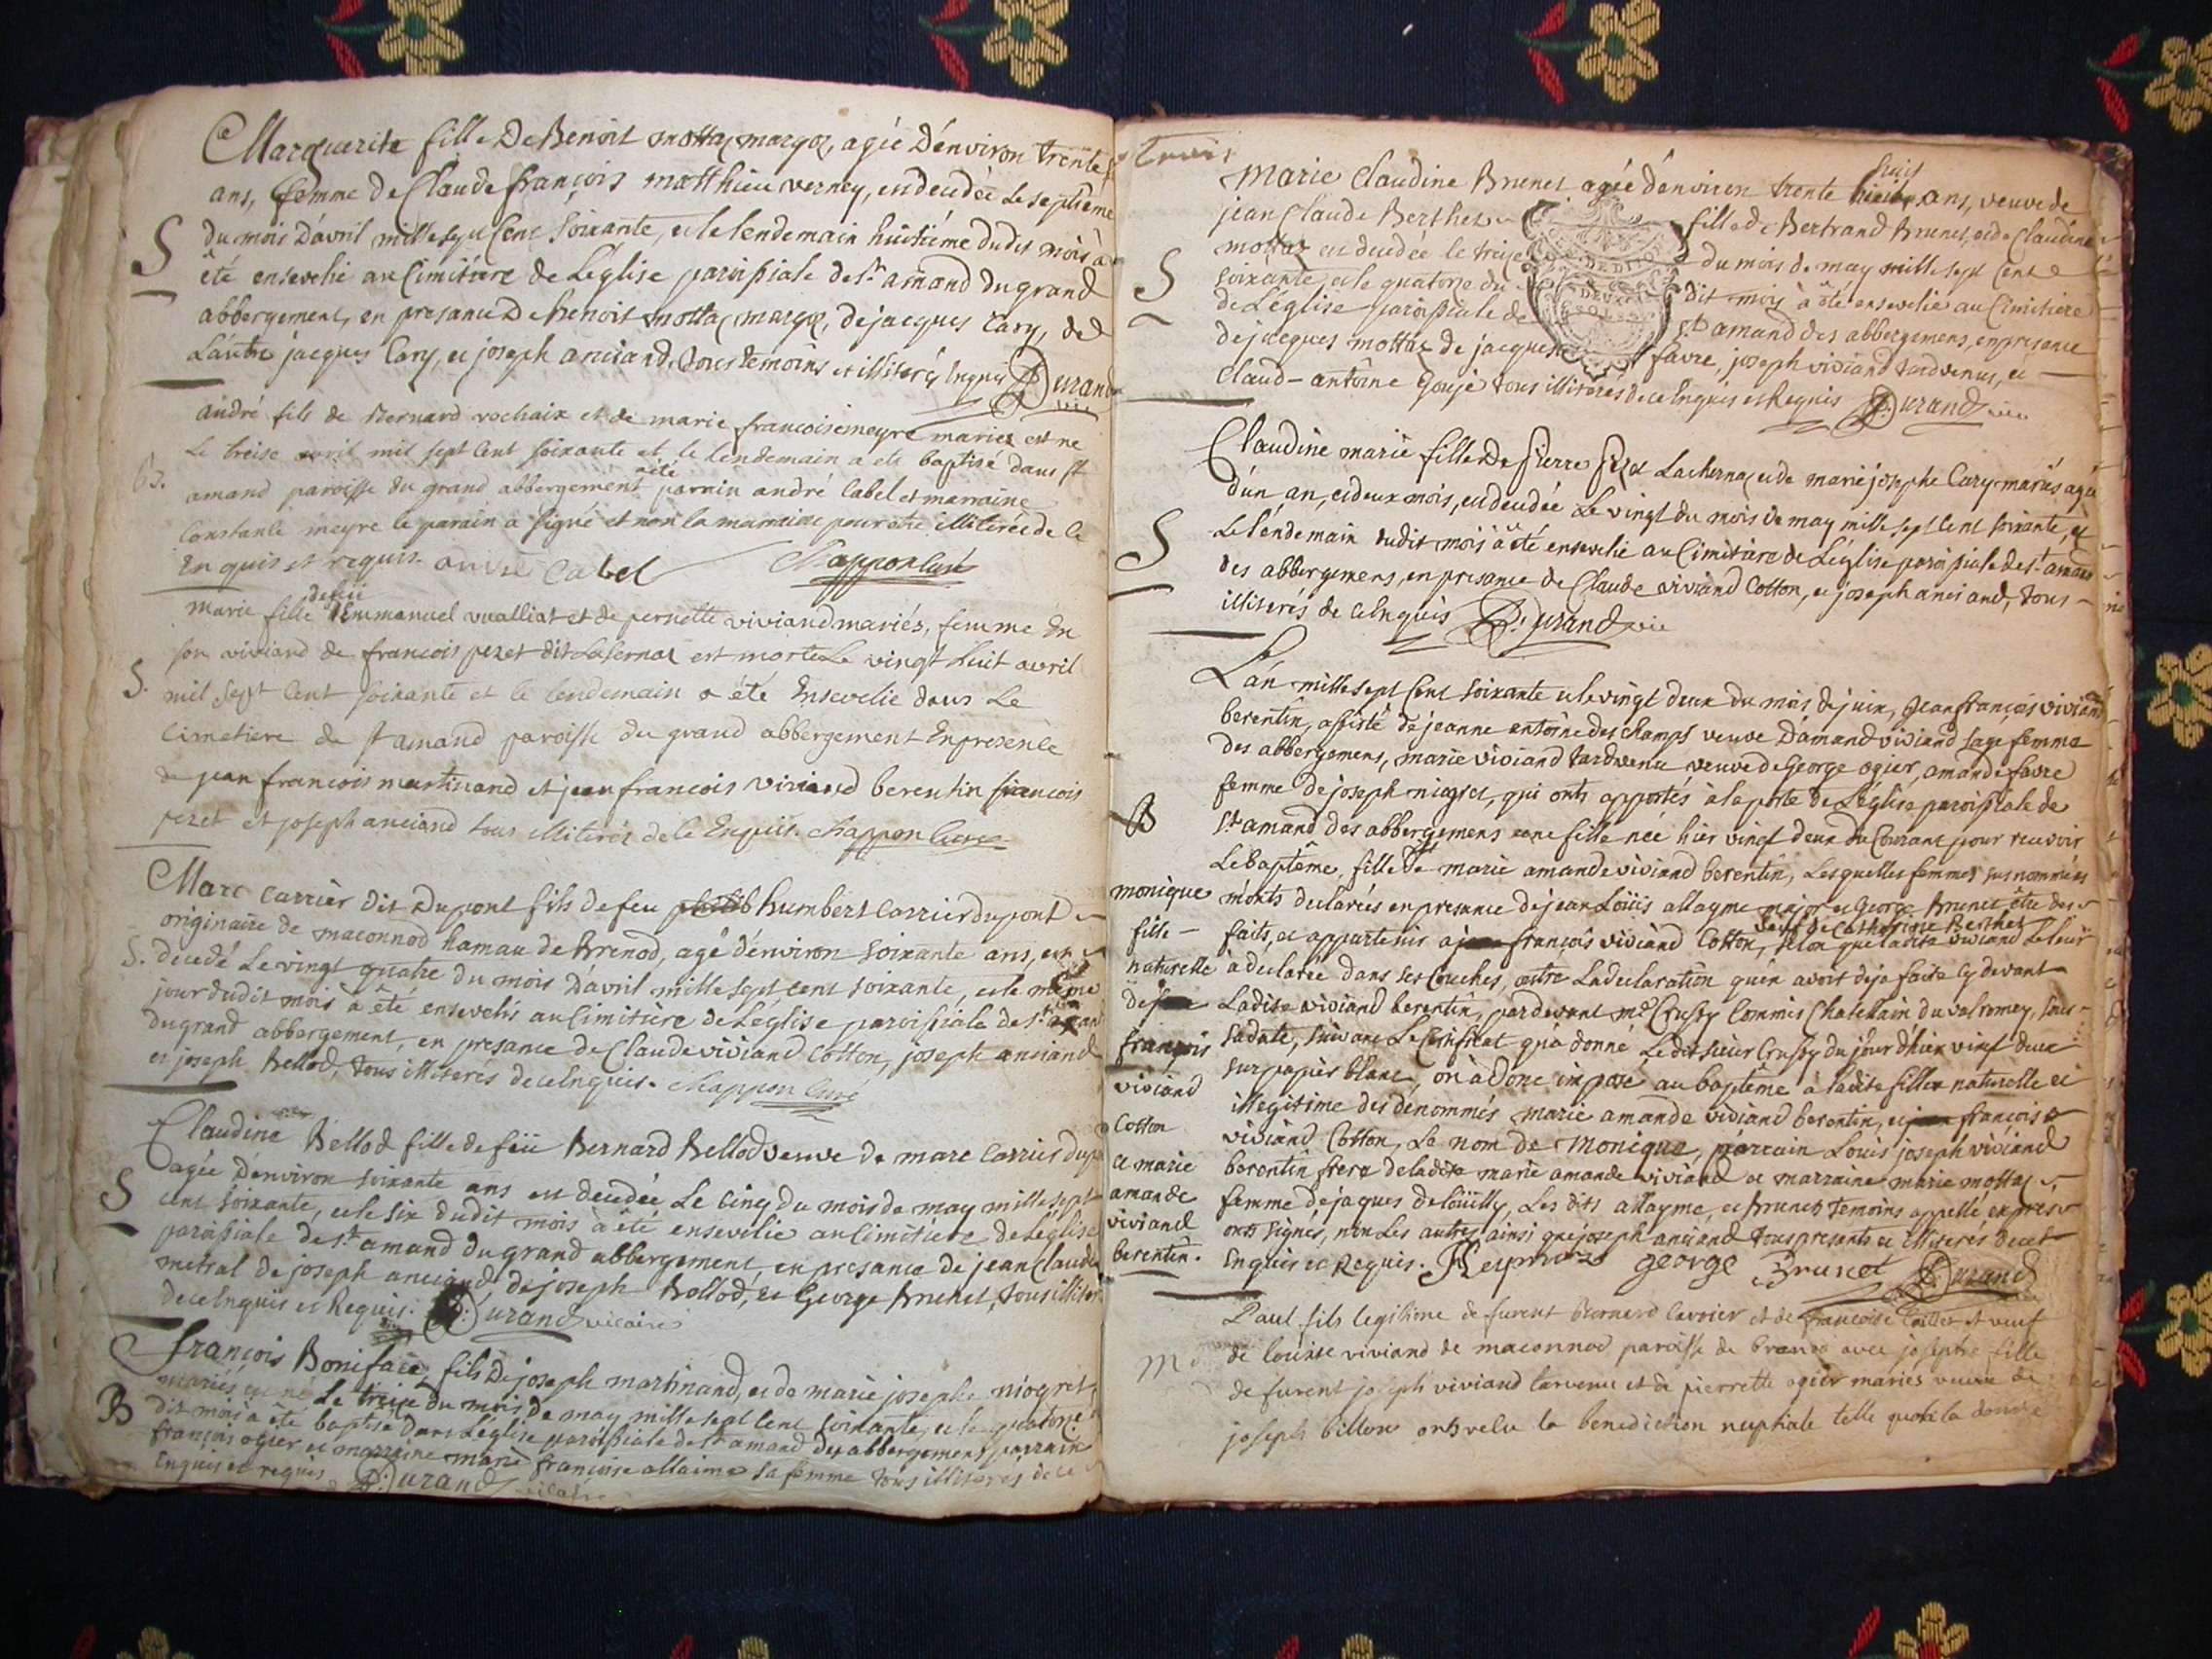 Marguerite fille De Benoit mottaz margoz, agée D'environ trente
ans, femme de Claude françois matthieu verney, est decedée Le septieme
S
du mois D'avril mille sept Cent Soixante, et le lendemain huitiéme dudit mois à
été ensevelie au Cimitiere de L'eglise paroissiale de St amand du grand
abbergement, en presance De benoit mottaz margoz, de jacques Cary, de
L'autre jacques Cary, et joseph anciand, tous temoins et illiterés Enquis Durand
andré fils de Bernard rochaix et de marie francoise meyre mariez est ne
Le treise avril mil sept Cent soixante et le lendemain a eté baptisé dans st
B.
amand paroisse du grand abbergement parain andré Cabel et marraine
Constante meyre le parain a signé et non la marraine pour etre illiterée de Ce
Enquis et requis. andré Cabel Chappon Curé
defeu
marie fille d'Emmanuel vualliat et de pernette viviand mariés, femme En
son viviand de francois pezet dit Lasernaz est morte Le vingt huit avril
S.
mil sept Cent soixante et le lendemain a été Ensevelie dans Le
Cimetiere de st amand paroisse du grand abbergement En presence
de jean francois martinand et jean francois viviand berentin francois
pezet et joseph anciand tous illiterés de Ce Enquis. Chappon Curé
Marc Carrier dit Dupont fils de feu humbert Carrier dupont
originaire de maconnod hamau de Brenod, agé d'environ soixante ans, est
S.
decedé Le vingt quatre du mois D'avril mille sept cent soixante, et le même
jour dudit mois à été ensevelis au Cimitiere de L'église paroissiale de St amand
du grand abbergement, en presance de Claude viviand Cotton, joseph anciand
et joseph Bellod, tous illiterés de ce Enquis. Chappon Curé
Claudine Bellod fille de feü Bernard Bellod veuve de marc Carrier dup
agée D'environ soixante ans est decedée Le Cinq du mois de may mille sept
S
cent soixante, et le six dudit mois à été ensevelie au Cimitiére de L'église
paroissiale de St amand du grand abbergement, en presance de jean Claude
metral de joseph anciand, de joseph Bellod, et George Brunet, tous illiter
de ce Enquis et Requis. Durand vicaire
françois Boniface, fils De joseph martinand, et de marie josephe niogret,
mariés est né Le treize du mois de may mille sept Cent soixante, et le quatorze
B
dit mois à été baptisé dans L'église paroissiale de St amand des abbergemens parrain
françois ogier et marraine marie françoise allaime sa femme tous illiterés de ce
Enquis et requis Durand vicaire
huit
Marie Claudine Brunet agée d'environ trente ans, veuve de
jean Claude Berthet fille de Bertrand Brunet, et de Claudine
mottaz est decedée le treize du mois de may mille sept Cent
S
soixante, et le quatorze du dit mois à été ensevelie au Cimitiere
de L'église paroissiale de St amand des abbergemens, en presence
de jacques mottaz de jacques favre, joseph viviand tardvenu, et
Claud-antoine Goujé tous illiteres de ce Enquis et Requis Durand vic
Claudine marie fille De Pierre Pezet Lachernaz et de marie josephe Cary mariés agée
d'un an, et deux mois, est decedée Le vingt du mois de may mille sept Cent soixante, et
S
Le lendemain dudit mois à été ensevelie au Cimitiere de L'église paroissiale de St amand
des abbergemens, en presance de Claude viviand Cotton, et joseph anciand, tous
illiterés de ce Enquis Durand vic
L'an mille sept Cent soixante et le vingt deux du mois de juin, jean françois viviand
berentin, assisté de jeanne entoine des champs veuve D'amand viviand sage femme
des abbergemens, marie viviand tardvenu veuve de George ogier, amande favre
femme de joseph niogret, qui onts apportés à la porte de L'église paroissiale de
B
St amand des abbergemens une fille née hier vingt deux du Courant pour recevoir
Le baptême, fille de marie amande viviand berentin, Lesquelles femmes susnommées
m'onts declarées en presance de jean Loüis allayme major et George Brunet être des
veuf de Catherine Berthet
faits, et appartenir a françois viviand Cotton, selon que ladite viviand Le leur
à declarée dans ses Couches, outre La declaration qu'en avoit deja faite cy devant
Ladite viviand berentin, pardevant me Crussy Commis Chatelain du valromey, sous
sa date, suivant Le Certificat qu'a donné Ledit sieur Crussy du jour d'hier vingt deux
sur papier blanc, on à donc imposé au baptême à ladite fille naturelle et
illegitime des denommés marie amande viviand berentin, et françois
viviand Cotton, Le nom de Monique, parrain Louis joseph viviand
berentin frere de ladite marie amande viviand et marraine marie mottaz
femme de jaques delouilly, Les dits allayme, et Brunet temoins appellé exprès
onts signés, non Les autres ainsi que joseph anciand tous presents et illiterés de cet
Enquis et Requis. george Brunet Durand
monique
fille
naturelle
de
françois
viviand
Cotton
et marie
amande
viviand
berentin.
Paul fils legitime de furent Bernard Carrier et de francoise et veuf
M
de Louise viviand de maconnod paroisse de Brenod avec josephe fille
de furent joseph viviand tarvenu et de pierrette ogier mariés veuve de
joseph billon onts reçu la benediction nuptiale telle quon la donne